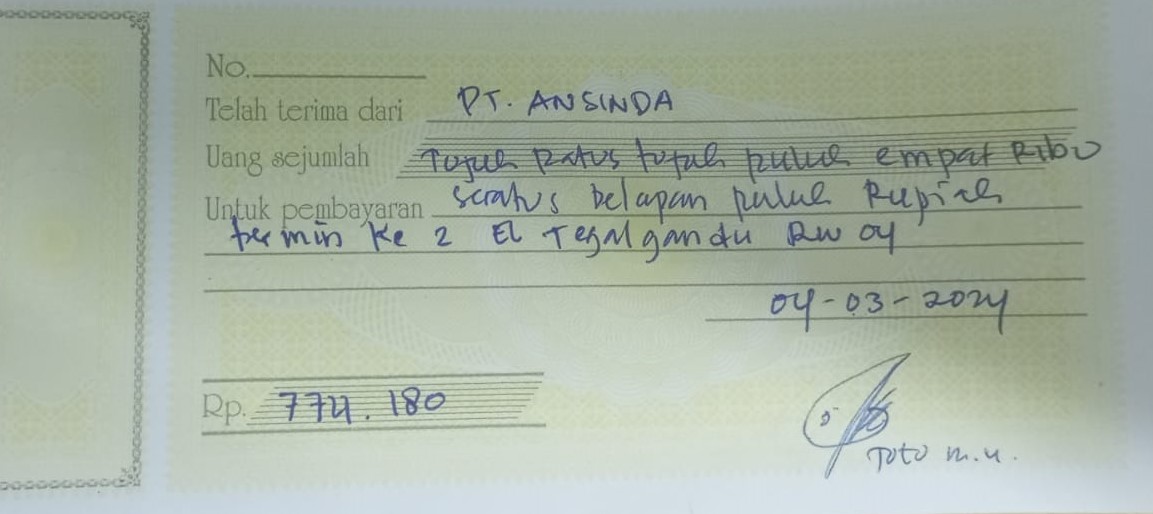 No.
Telah terima dari PT. ANSINDA
Uang sejumlah Tujuh Ratus tujuh puluh empat Ribu
seratus delapan puluh Rupiah
Untuk pembayaran
termin Ke 2 EL Tegalgandu RW 04
04-03-2024
Rp. 774.180
Toto M.U.